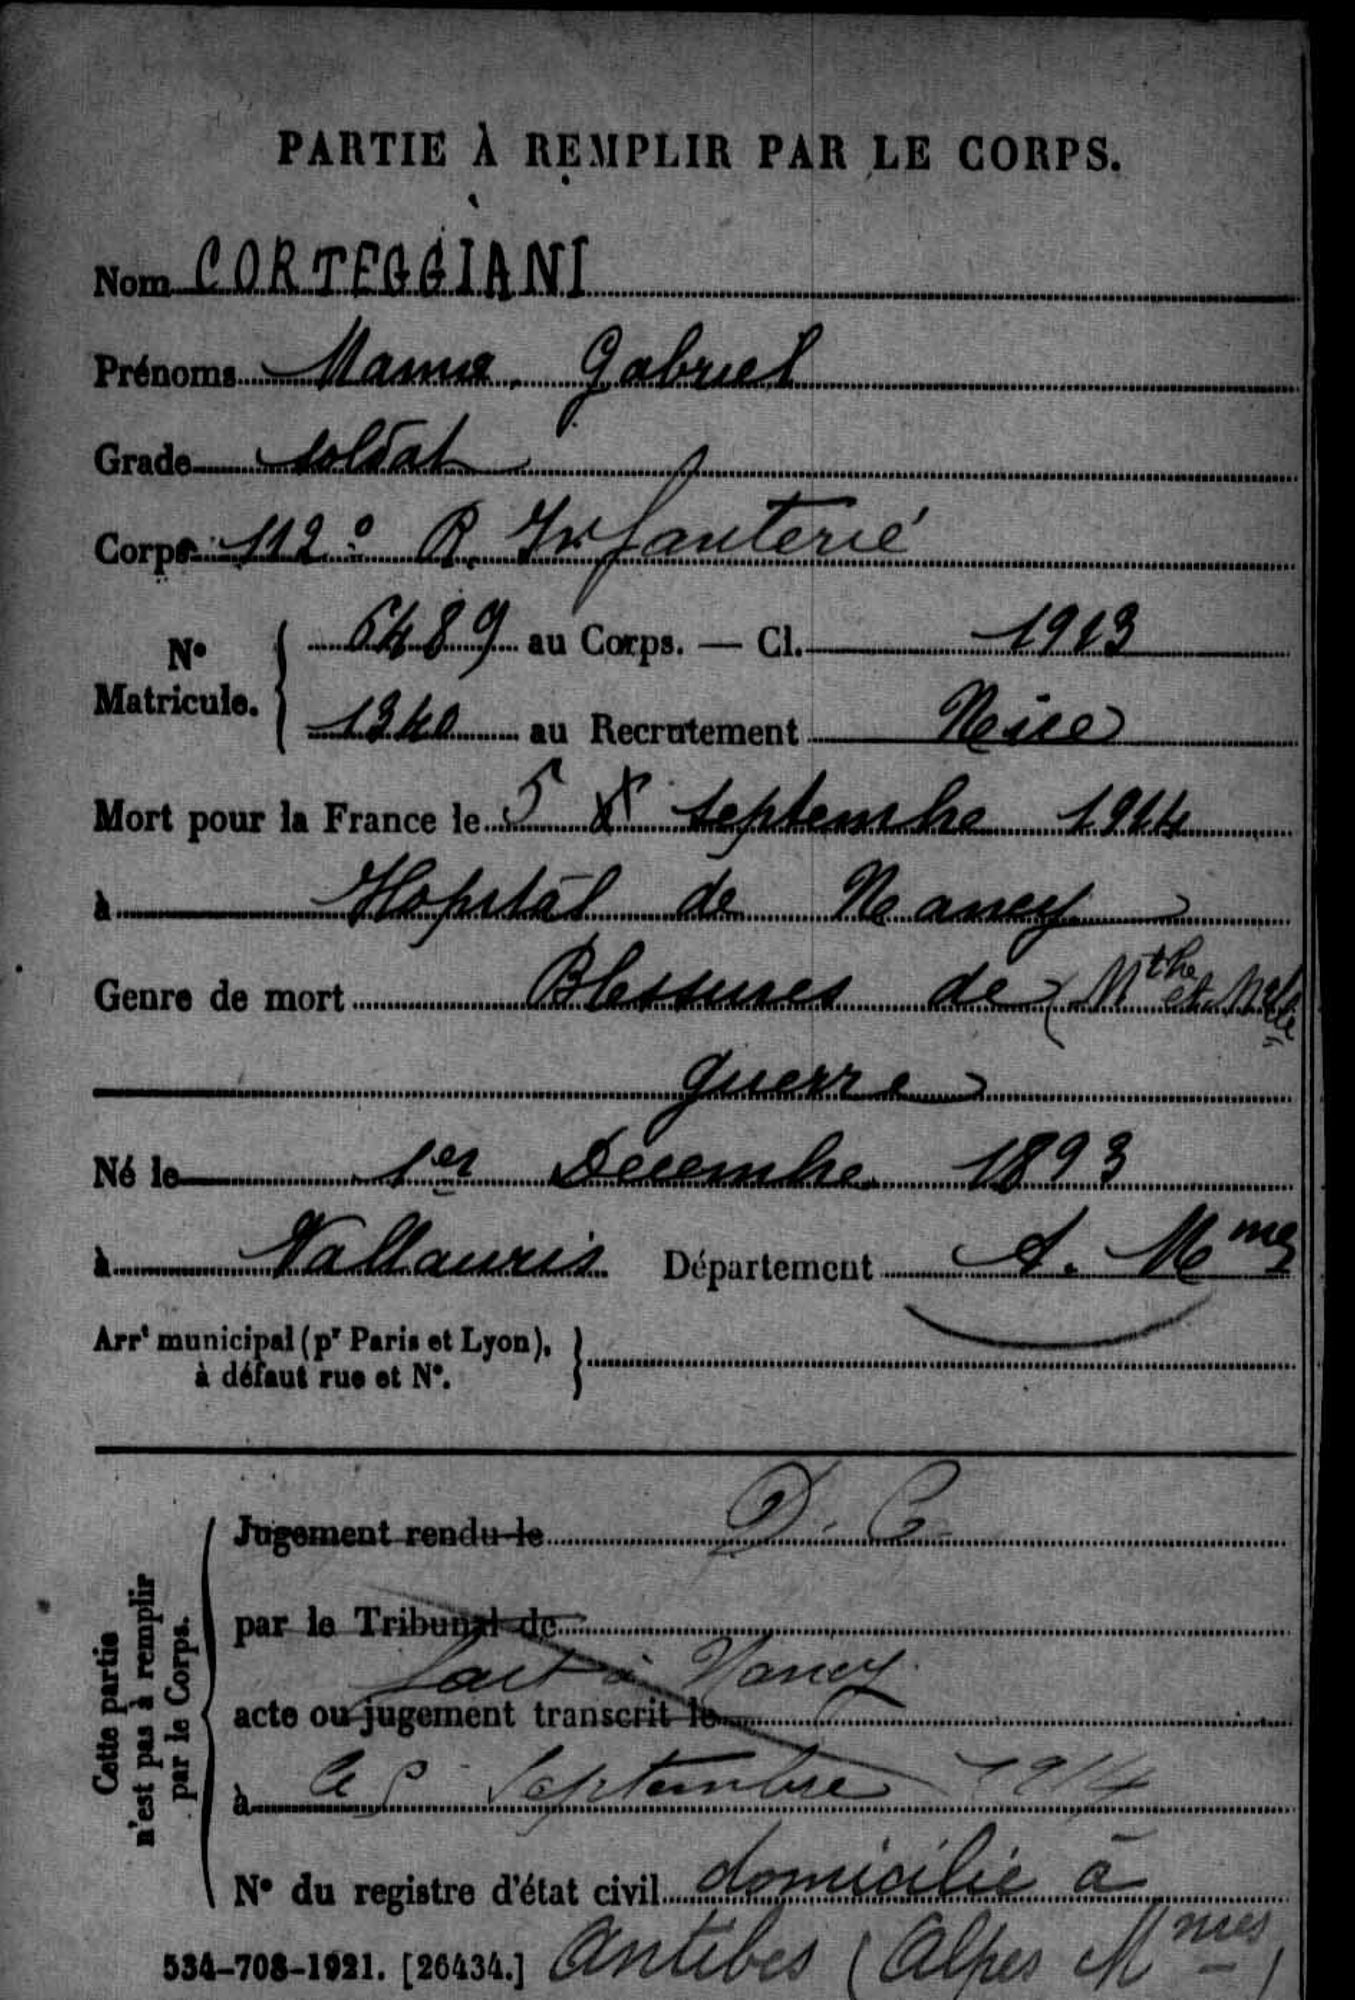 PARTIE À REMPLIR PAR LE CORPS.
Nom CORTEGGIANI
Prénoms Gabriel
Grade soldat
Corps 112° R. Infanterie
N° Matricule. 6489 au Corps. — Cl. 1913
1340 au Recrutement Nice
Mort pour la France le 5 septembre 1914
à Hopital de Nancy
Genre de mort Blessures de
guerre
Né le 1er Decembre 1893
à Vallauris Département A. Mmes
Arrt municipal (pr Paris et Lyon),
à défaut rue et N°.
Cette partie
n'est pas à remplir
par le Corps.
Jugement rendu le D. C
par le Tribunal de
fait à Nancy
acte ou jugement transcrit le
à le 5 Septembre 1914
N° du registre d'état civil domicilié à
534-708-1921. [26434.] Antibes (Alpes Mmes)